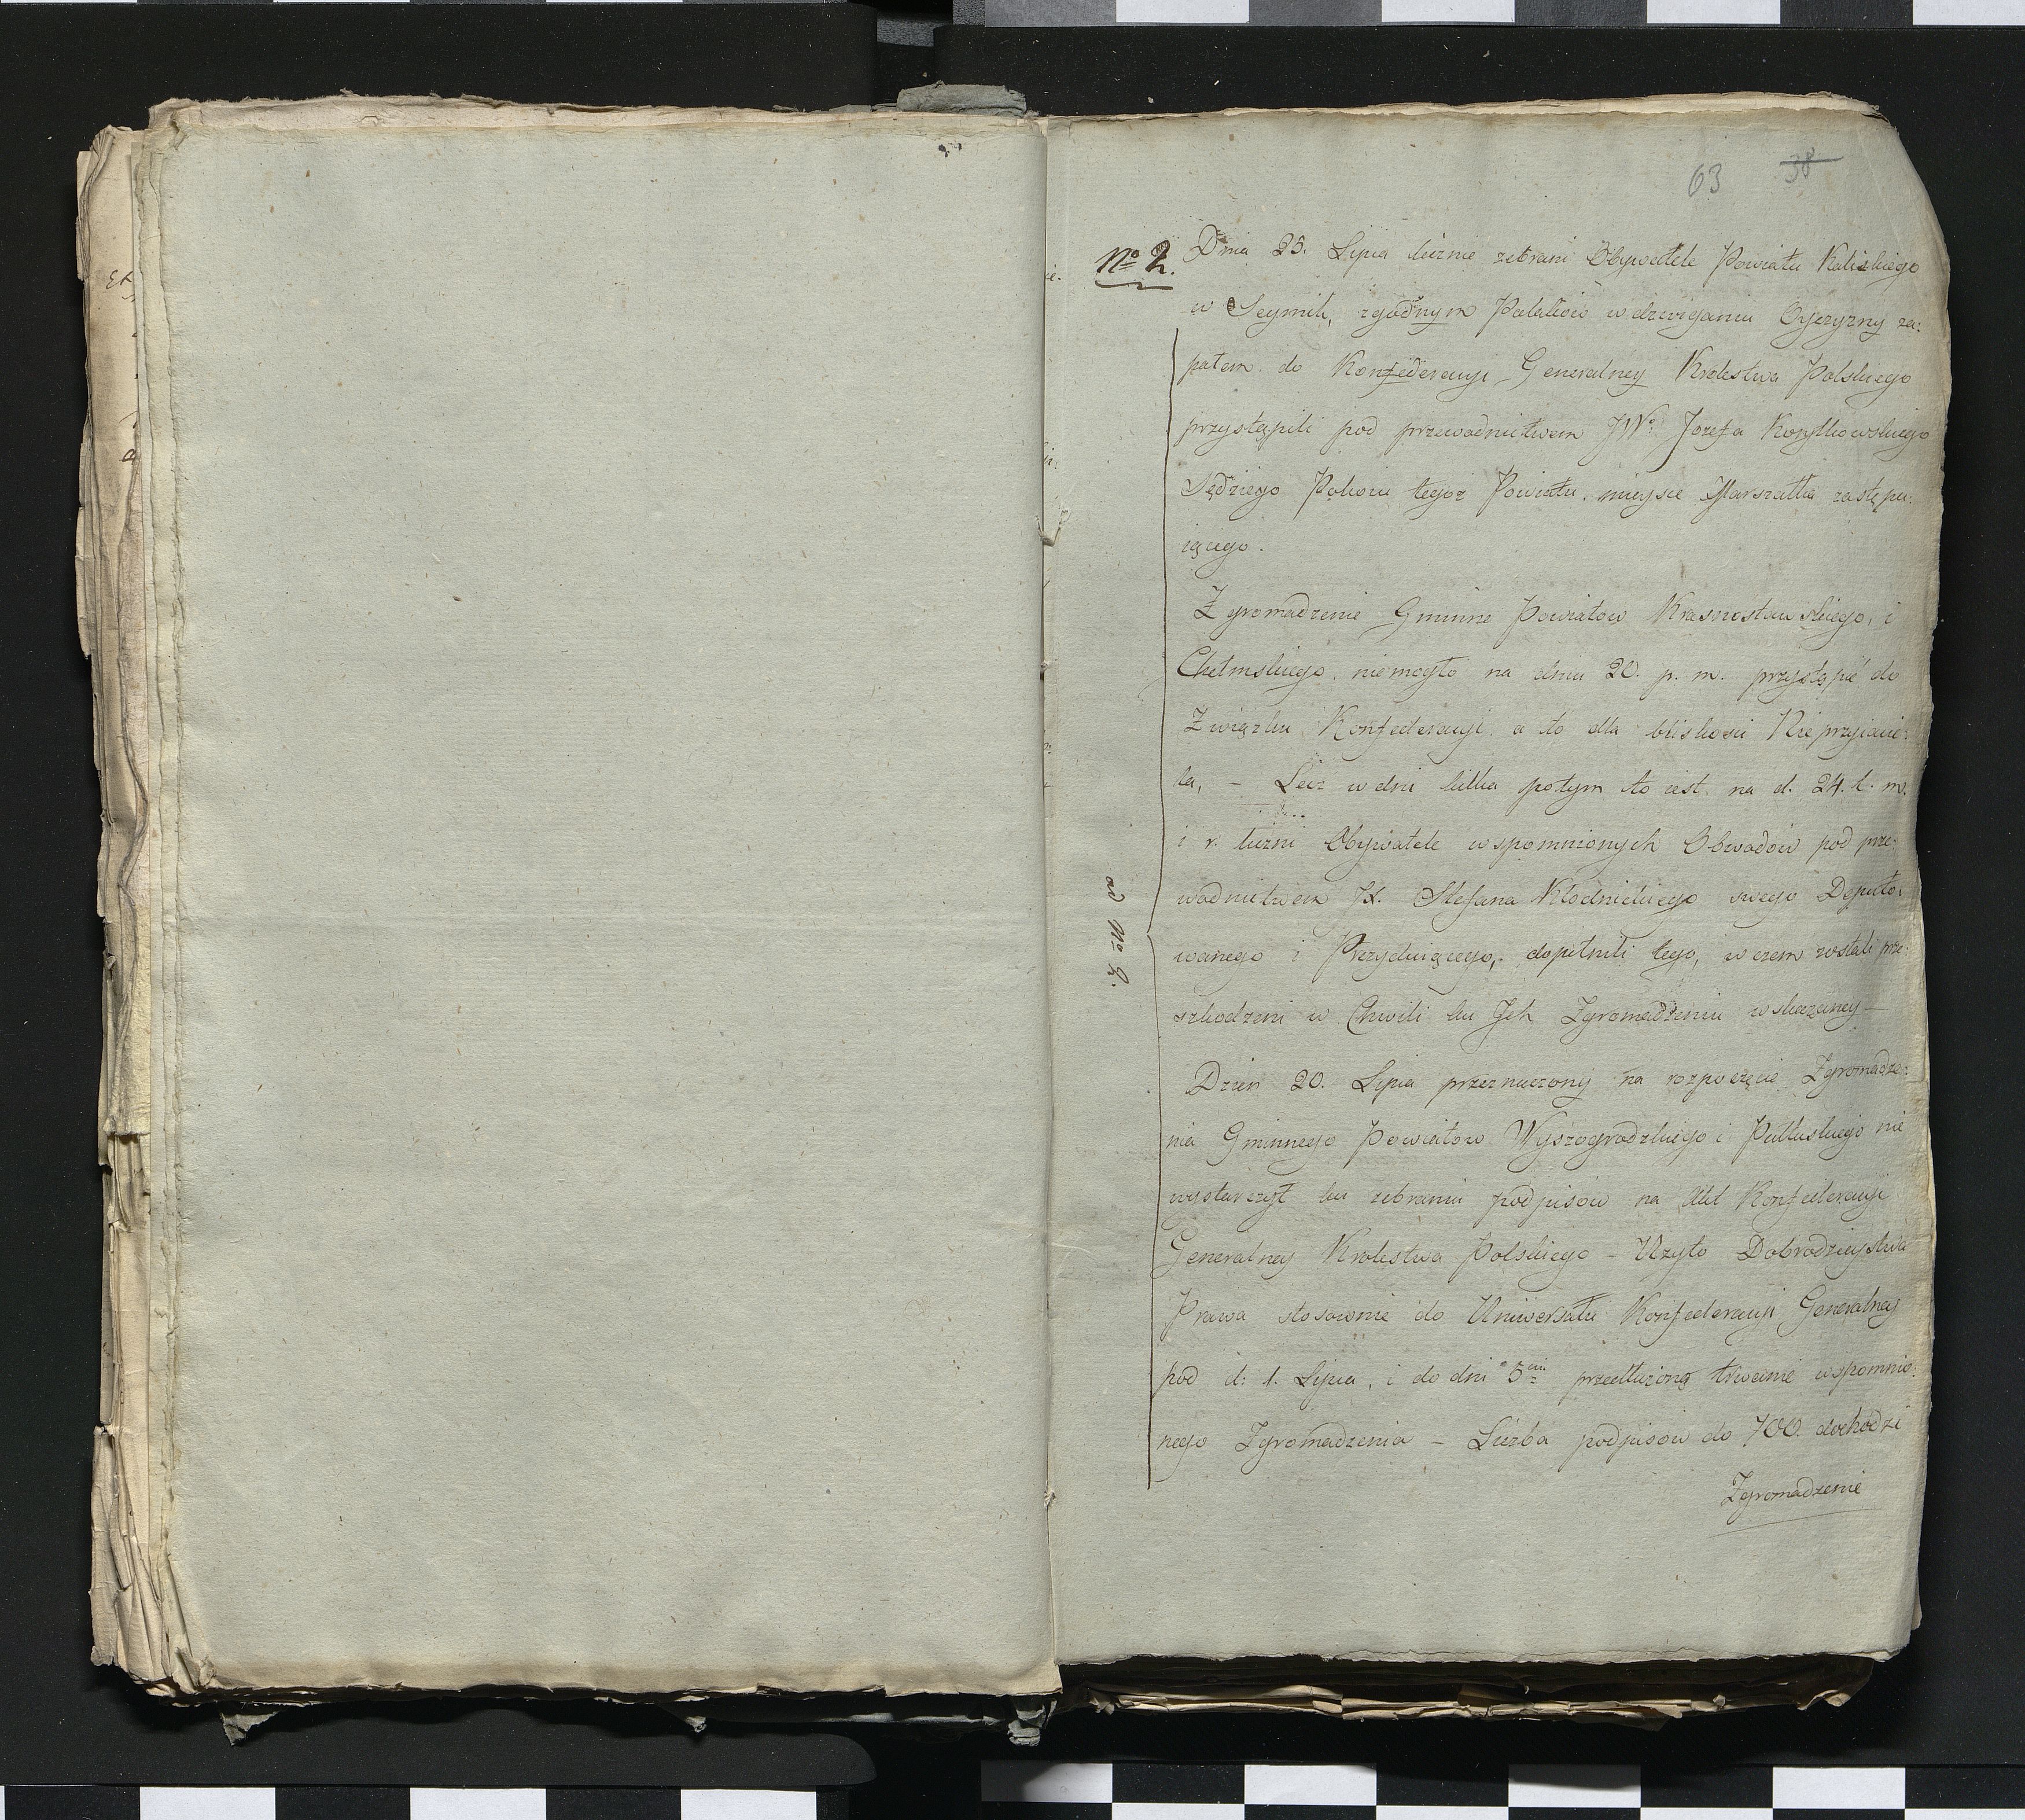 63 38
No 2. Dnia 25. Lipca licznie zebrani Obywatele Powiatu Kaliskiego
w Seymik, zgodnym Polaków w dzwiganiu Oyczyzny za:
pałem do Konfederacyi Generalney Krolestwa Polskiego
przystąpili pod przewodnictwem JW. Jozefa
Sędziego Pokoiu tegoż Powiatu, mieysce Marszałka zastępu:
iącego.
Zgromadzenie Gminne Powiatow Krasnostawskiego, i
Chełmskiego, niemogło na dniu 20. p. m. przystąpić do
Związku Konfederacyi a to dla bliskości Nieprzyiacie:
la, – Lecz w dni kilka potym to iest na d. 24. t. m.
i r. liczni Obywatele wspomnionych Obwodów pod prze:
wodnictwem JX. Stefana Kłodnickiego swego Deputo:
wanego i Prezyduiącego, dopełnili tego, w czem zostali prze:
szkodzeni w Chwili ku Ich Zgromadzeniu wskazaney –
Dzien 20. Lipca przeznaczony na rozpoczęcie Zgromadze:
nia Gminnego Powiatow Wyszogrodzkiego i Pułtuskiego nie
wystarczył ku zebraniu podpisów na Akt Konfederacyi
Generalney Krolestwa Polskiego – Użyto Dobrodzieystwa
Prawa stosownie do Uniwersału Konfederacyi Generalney
pod d: 1. Lipca, i do dni 5ciu przedłużono trwanie wspomnio:
nego Zgromadzenia – Liczba podpisów do 700. dochodzi
Zgromadzenie
ad No 2.